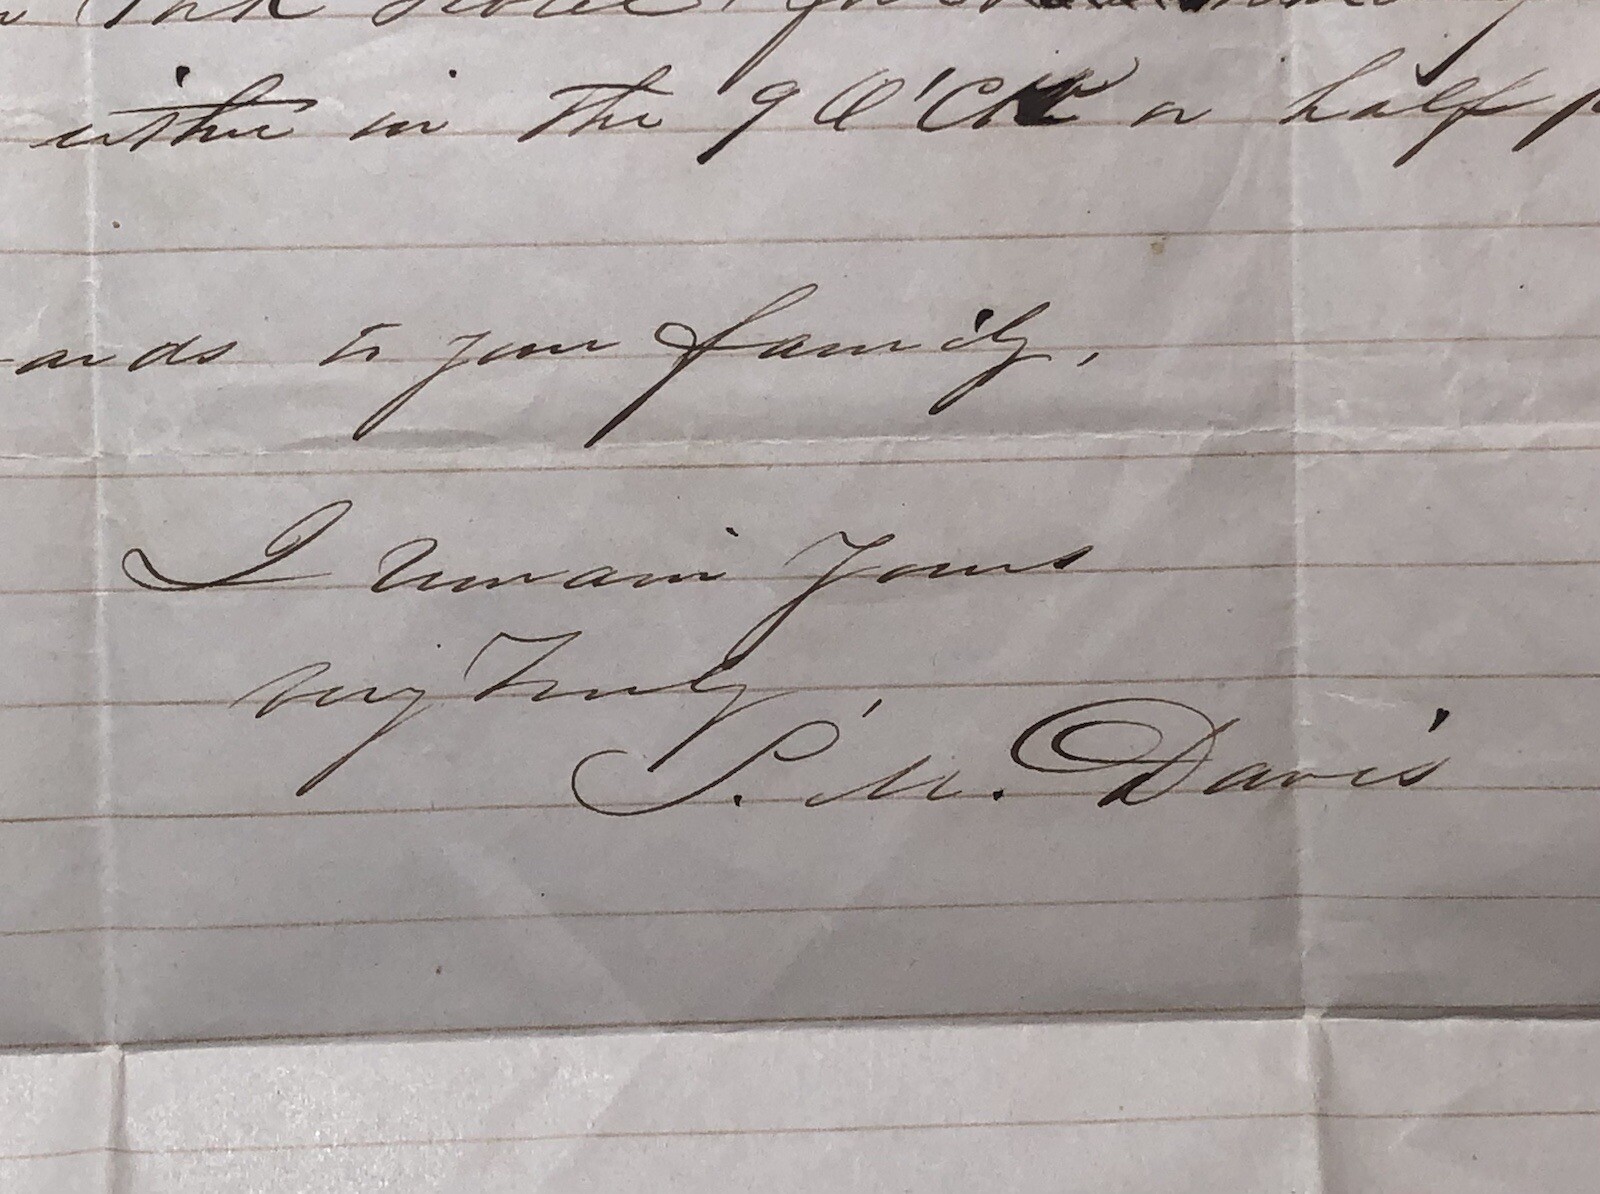 either in the 9 O'Clk or half
ards to your family,
I remain Yours
very Truly
S. M. Davis